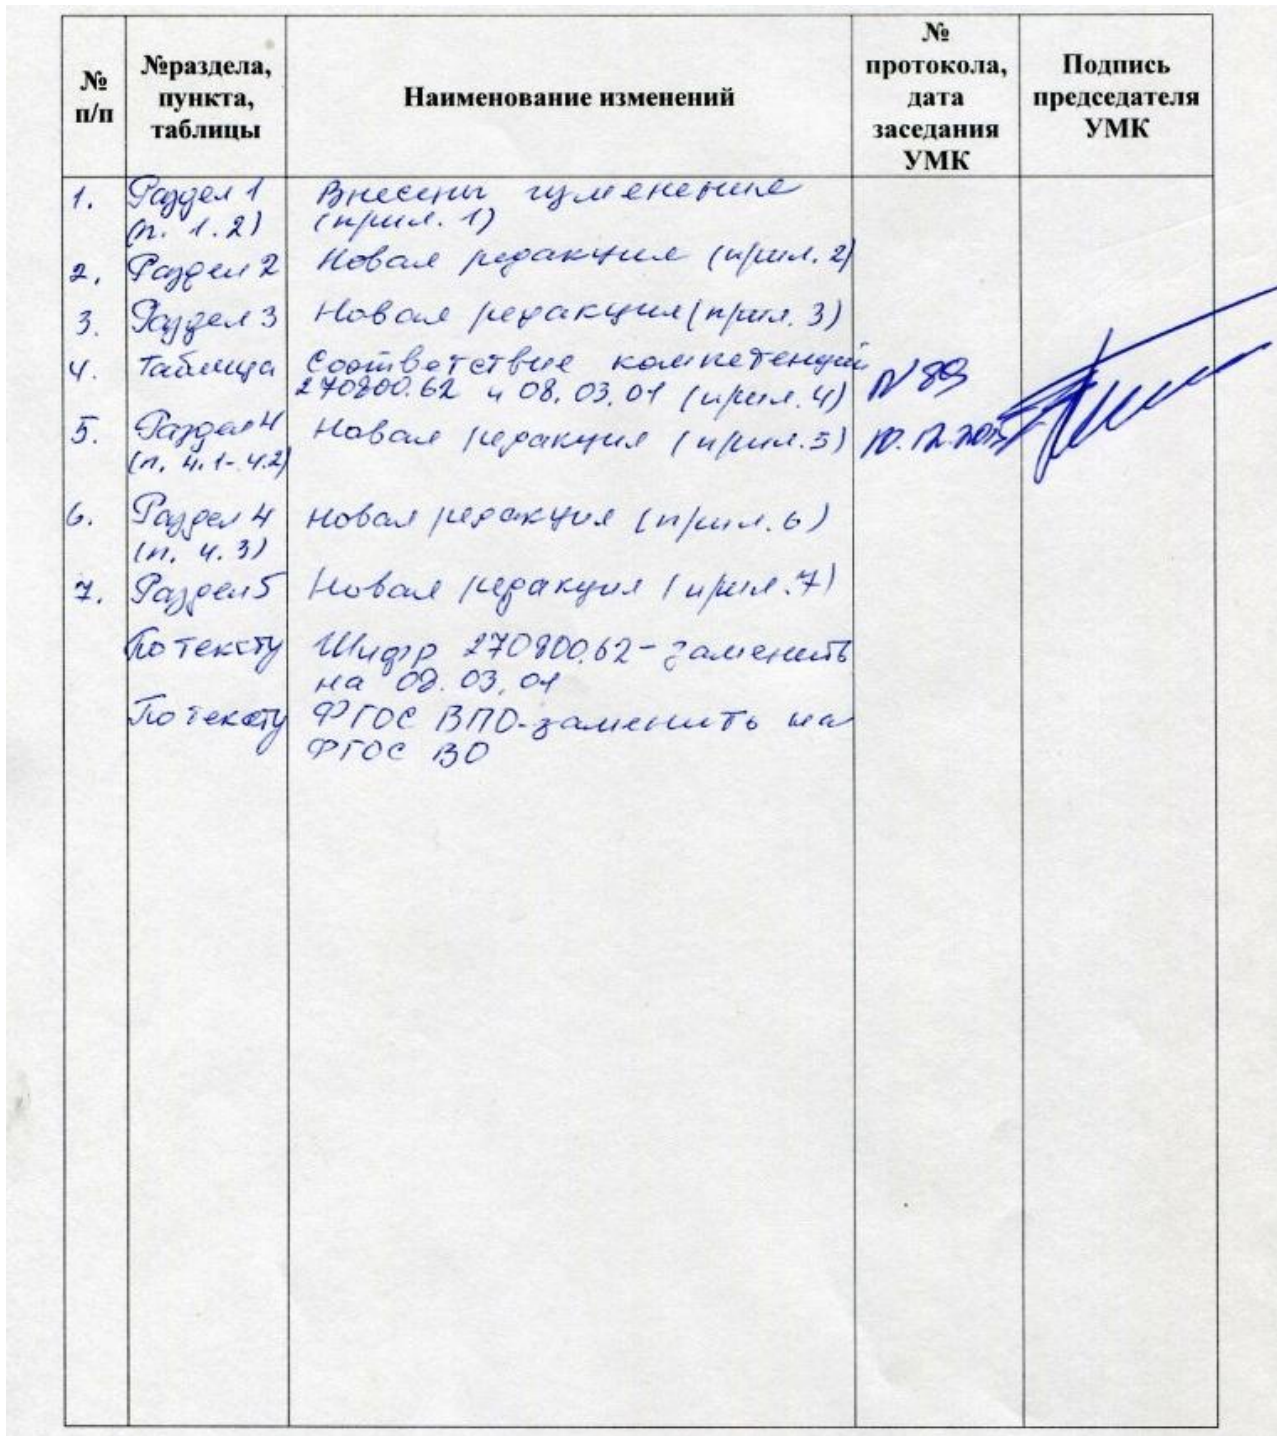 №
п/п
№раздела,
пункта,
таблицы
Наименование изменений
№
протокола,
дата
заседания
УМК
Подпись
председателя
УМК
1. Раздел 1 Внесены изменение
(п. 1.2) (прил. 1)
2. Раздел 2 Новая редакция (прил. 2)
3. Раздел 3 Новая редакция (прил. 3)
4. Таблица Соответствие компетенций
270800.62 и 08.03.01 (прил. 4) N 89
5. Раздел 4 Новая редакция (прил. 5) 10.12.2015
(п. 4.1-4.2)
6. Раздел 4 Новая редакция (прил. 6)
(п. 4.3)
7. Раздел 5 Новая редакция (прил. 7)
По тексту Шифр 270800.62 - заменить
на 08.03.01
По тексту ФГОС ВПО - заменить на
ФГОС ВО